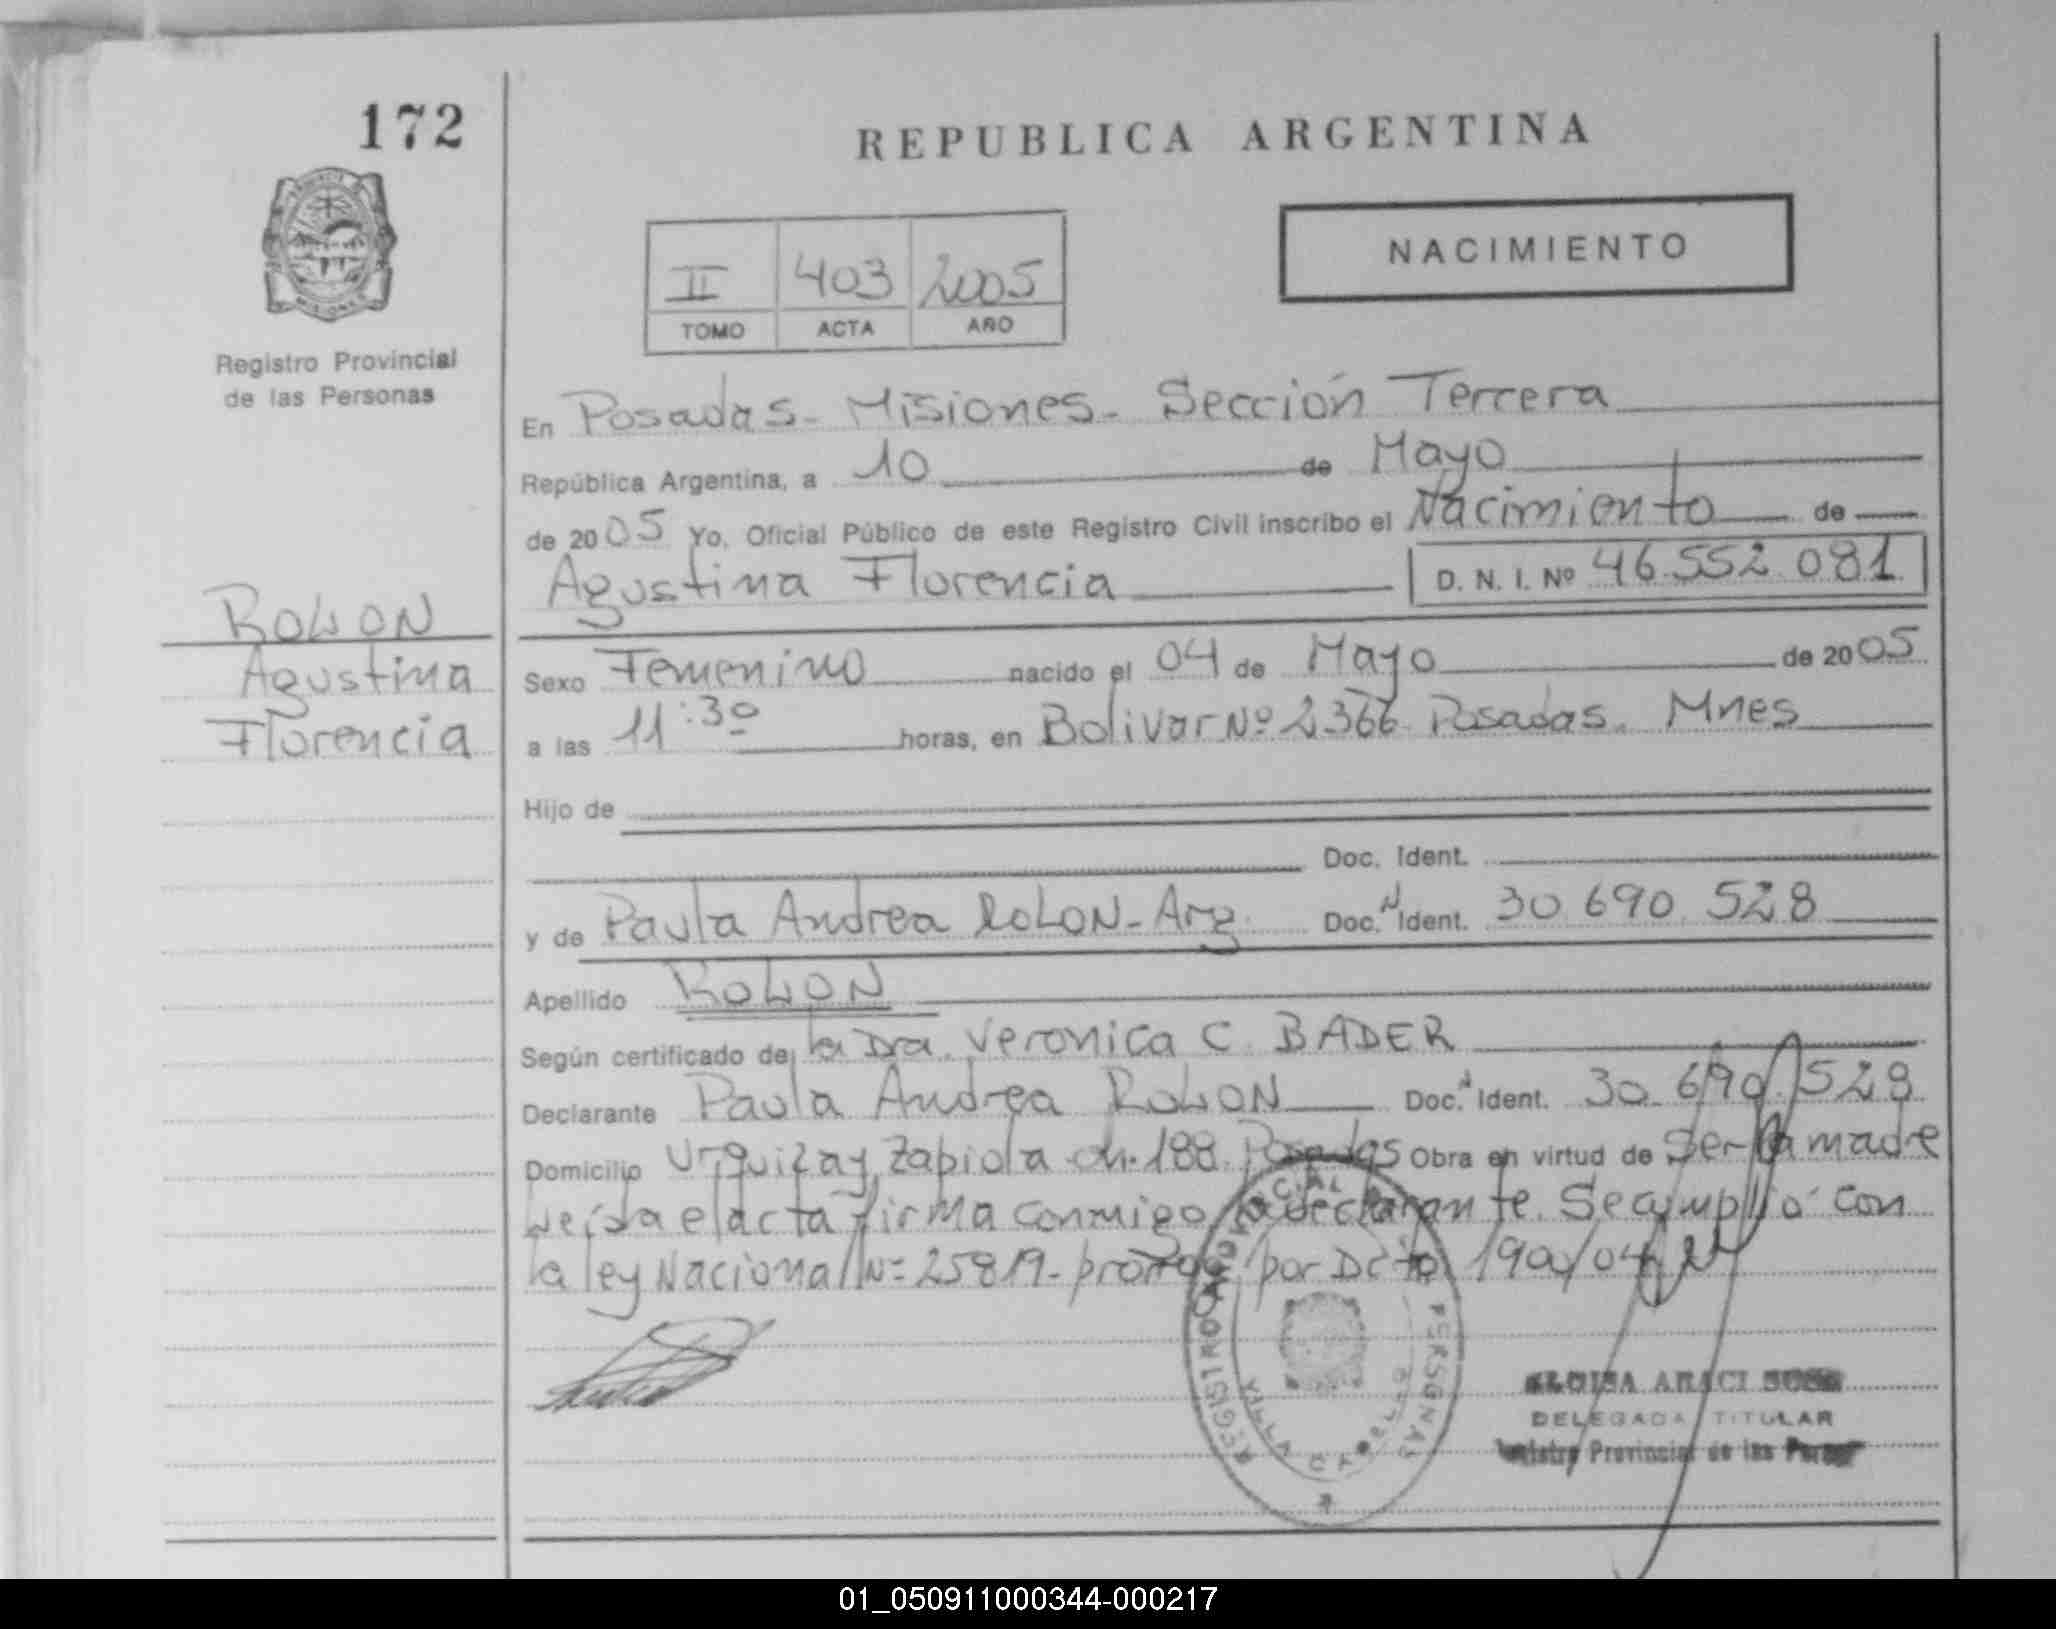 172
REPUBLICA ARGENTINA
NACIMIENTO
II 403 2005
TOMO ACTA AÑO
Registro Provincial
de las Personas
En Posadas - Misiones - Sección Tercera
República Argentina, a 10 de Mayo
de 2005 Yo, Oficial Público de este Registro Civil inscribo el Nacimiento de
Agustina Florencia D. N. I. Nº 46.552.081
ROLON
Agustina
Florencia
Sexo Femenino nacido el 04 de Mayo de 2005
a las 11:30 horas, en Bolivar Nº 2366 Posadas. Mnes
Hijo de
Doc. Ident.
y de Paula Andrea ROLON - Arg. Doc. N Ident. 30 690 528
Apellido ROLON
Según certificado de la Dra. Veronica C. BADER
Declarante Paula Andrea ROLON Doc. Ident. 30.690.528
Domicilio Urquiza y Zapiola ch. 188. Posadas Obra en virtud de Ser la madre
Leída el acta firma conmigo la declarante. Se cumplió con
la ley Nacional Nº 25819 - por Dcto
REGISTRO PROVINCIAL PERSONAS
VILLA CABELLO
ELOISA ARACI SOSA
DELEGADA TITULAR
Registro Provincial de las Personas
01_050911000344-000217